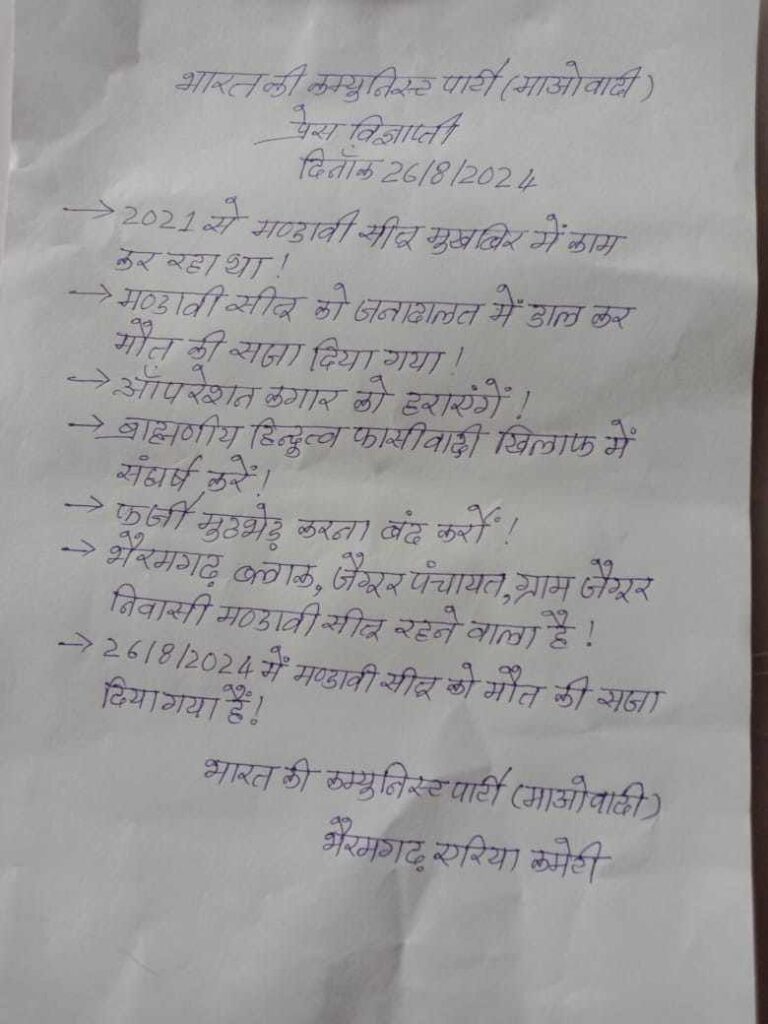 भारत की कम्युनिस्ट पार्टी (माओवादी)
प्रेस विज्ञाप्ती
दिनाँक 26/8/2024
→ 2021 से मण्डावी सीतू मुखबिर में काम
कर रहा था !
→ मण्डावी सीतू को जनादालत में डाल कर
मौत की सजा दिया गया !
→ ऑंपरेशन कगार को हराएंगें !
→ ब्राह्मणीय हिन्दुत्व फासीवादी खिलाफ में
संघर्ष करें !
→ फर्जी मुठभेड़ करना बंद करों !
→ भैरमगढ़ ब्लाक, जैगूर पंचायत, ग्राम जैगूर
निवासी मण्डावी सीतू रहने वाला है !
→ 26/8/2024 में मण्डावी सीतू को मौत की सजा
दिया गया हैं !
भारत की कम्युनिस्ट पार्टी (माओवादी)
भैरमगढ़ एरिया कमेटी